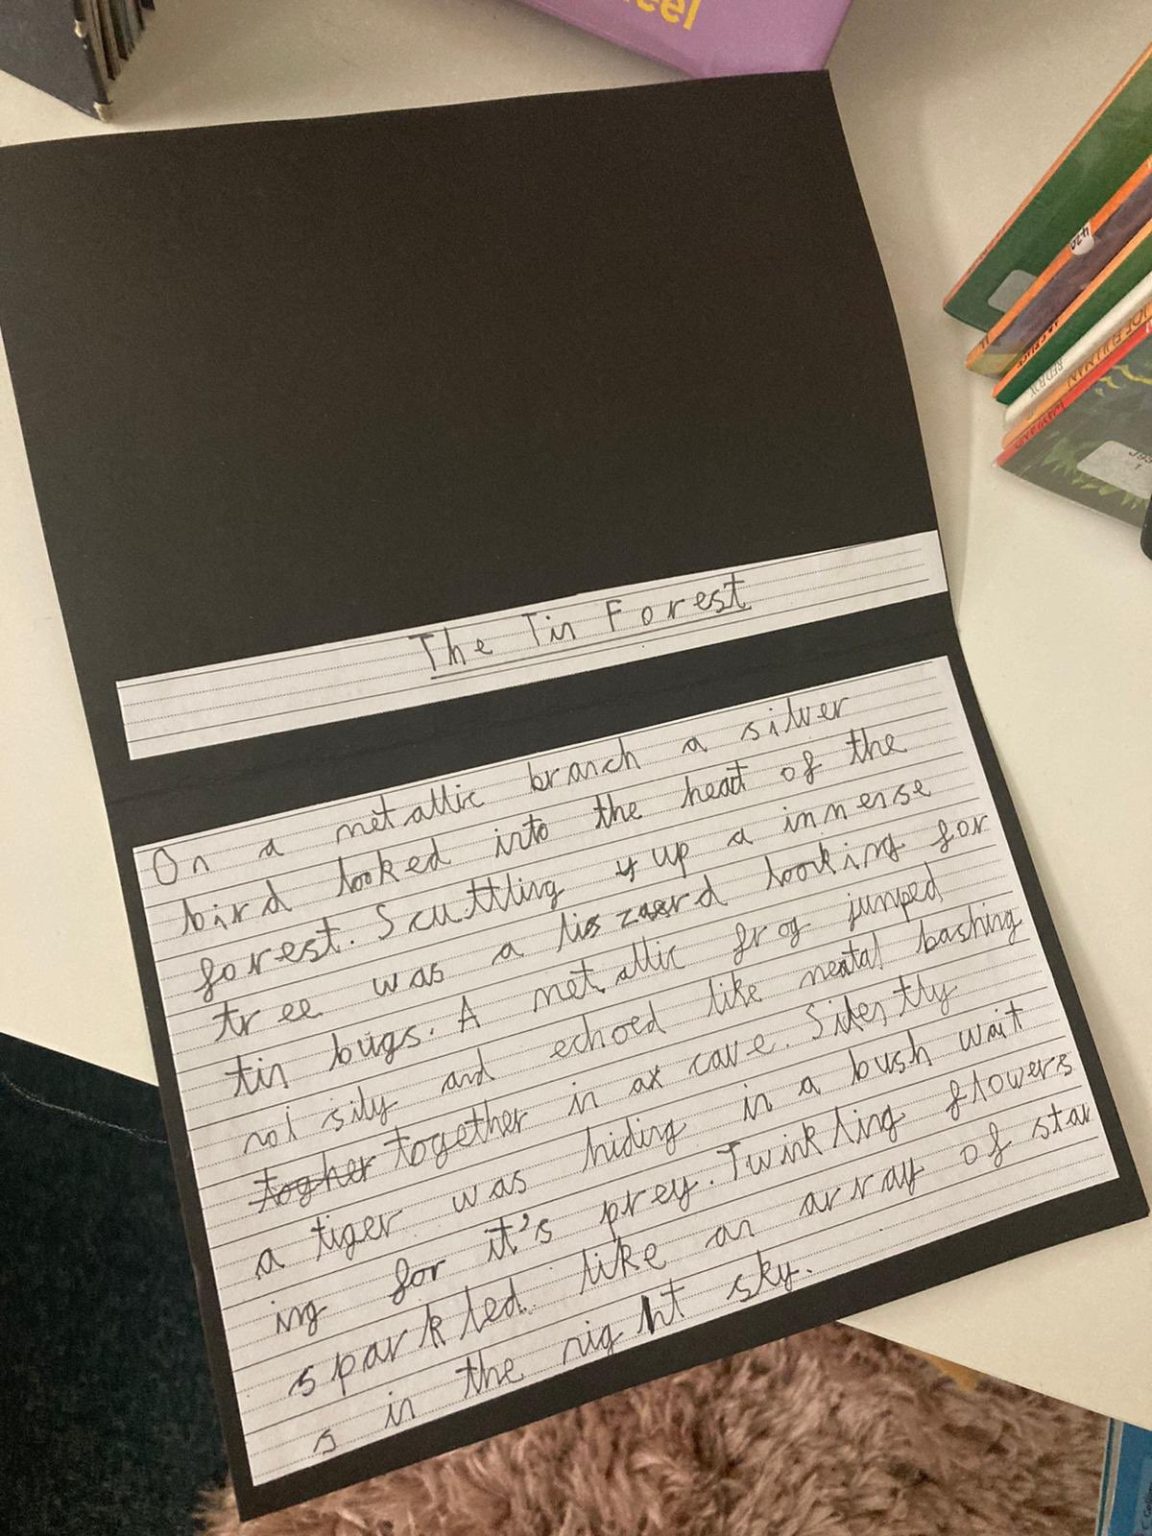 The Tin Forest
On a metallic branch a silver
bird looked into the heart of the
forest. Scuttling up a innense
tree was a lizard looking for
tin bugs. A metallic frog jumped
noisily and echoed like metal bashing
togher together in a cave. Silently
a tiger was hiding in a bush wait
ing for it's prey. Twinkling flowers
sparkled like an array of star
s in the night sky.
eel